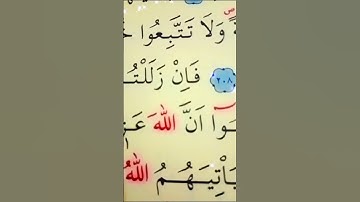 ةً وَلَا تَتَّبِعُوا خُ
٢٠٨ فَاِنْ زَلَلْتُ
ـوا اَنَّ اللّٰهَ عَز
يَأْتِيَهُمُ اللّٰهُ